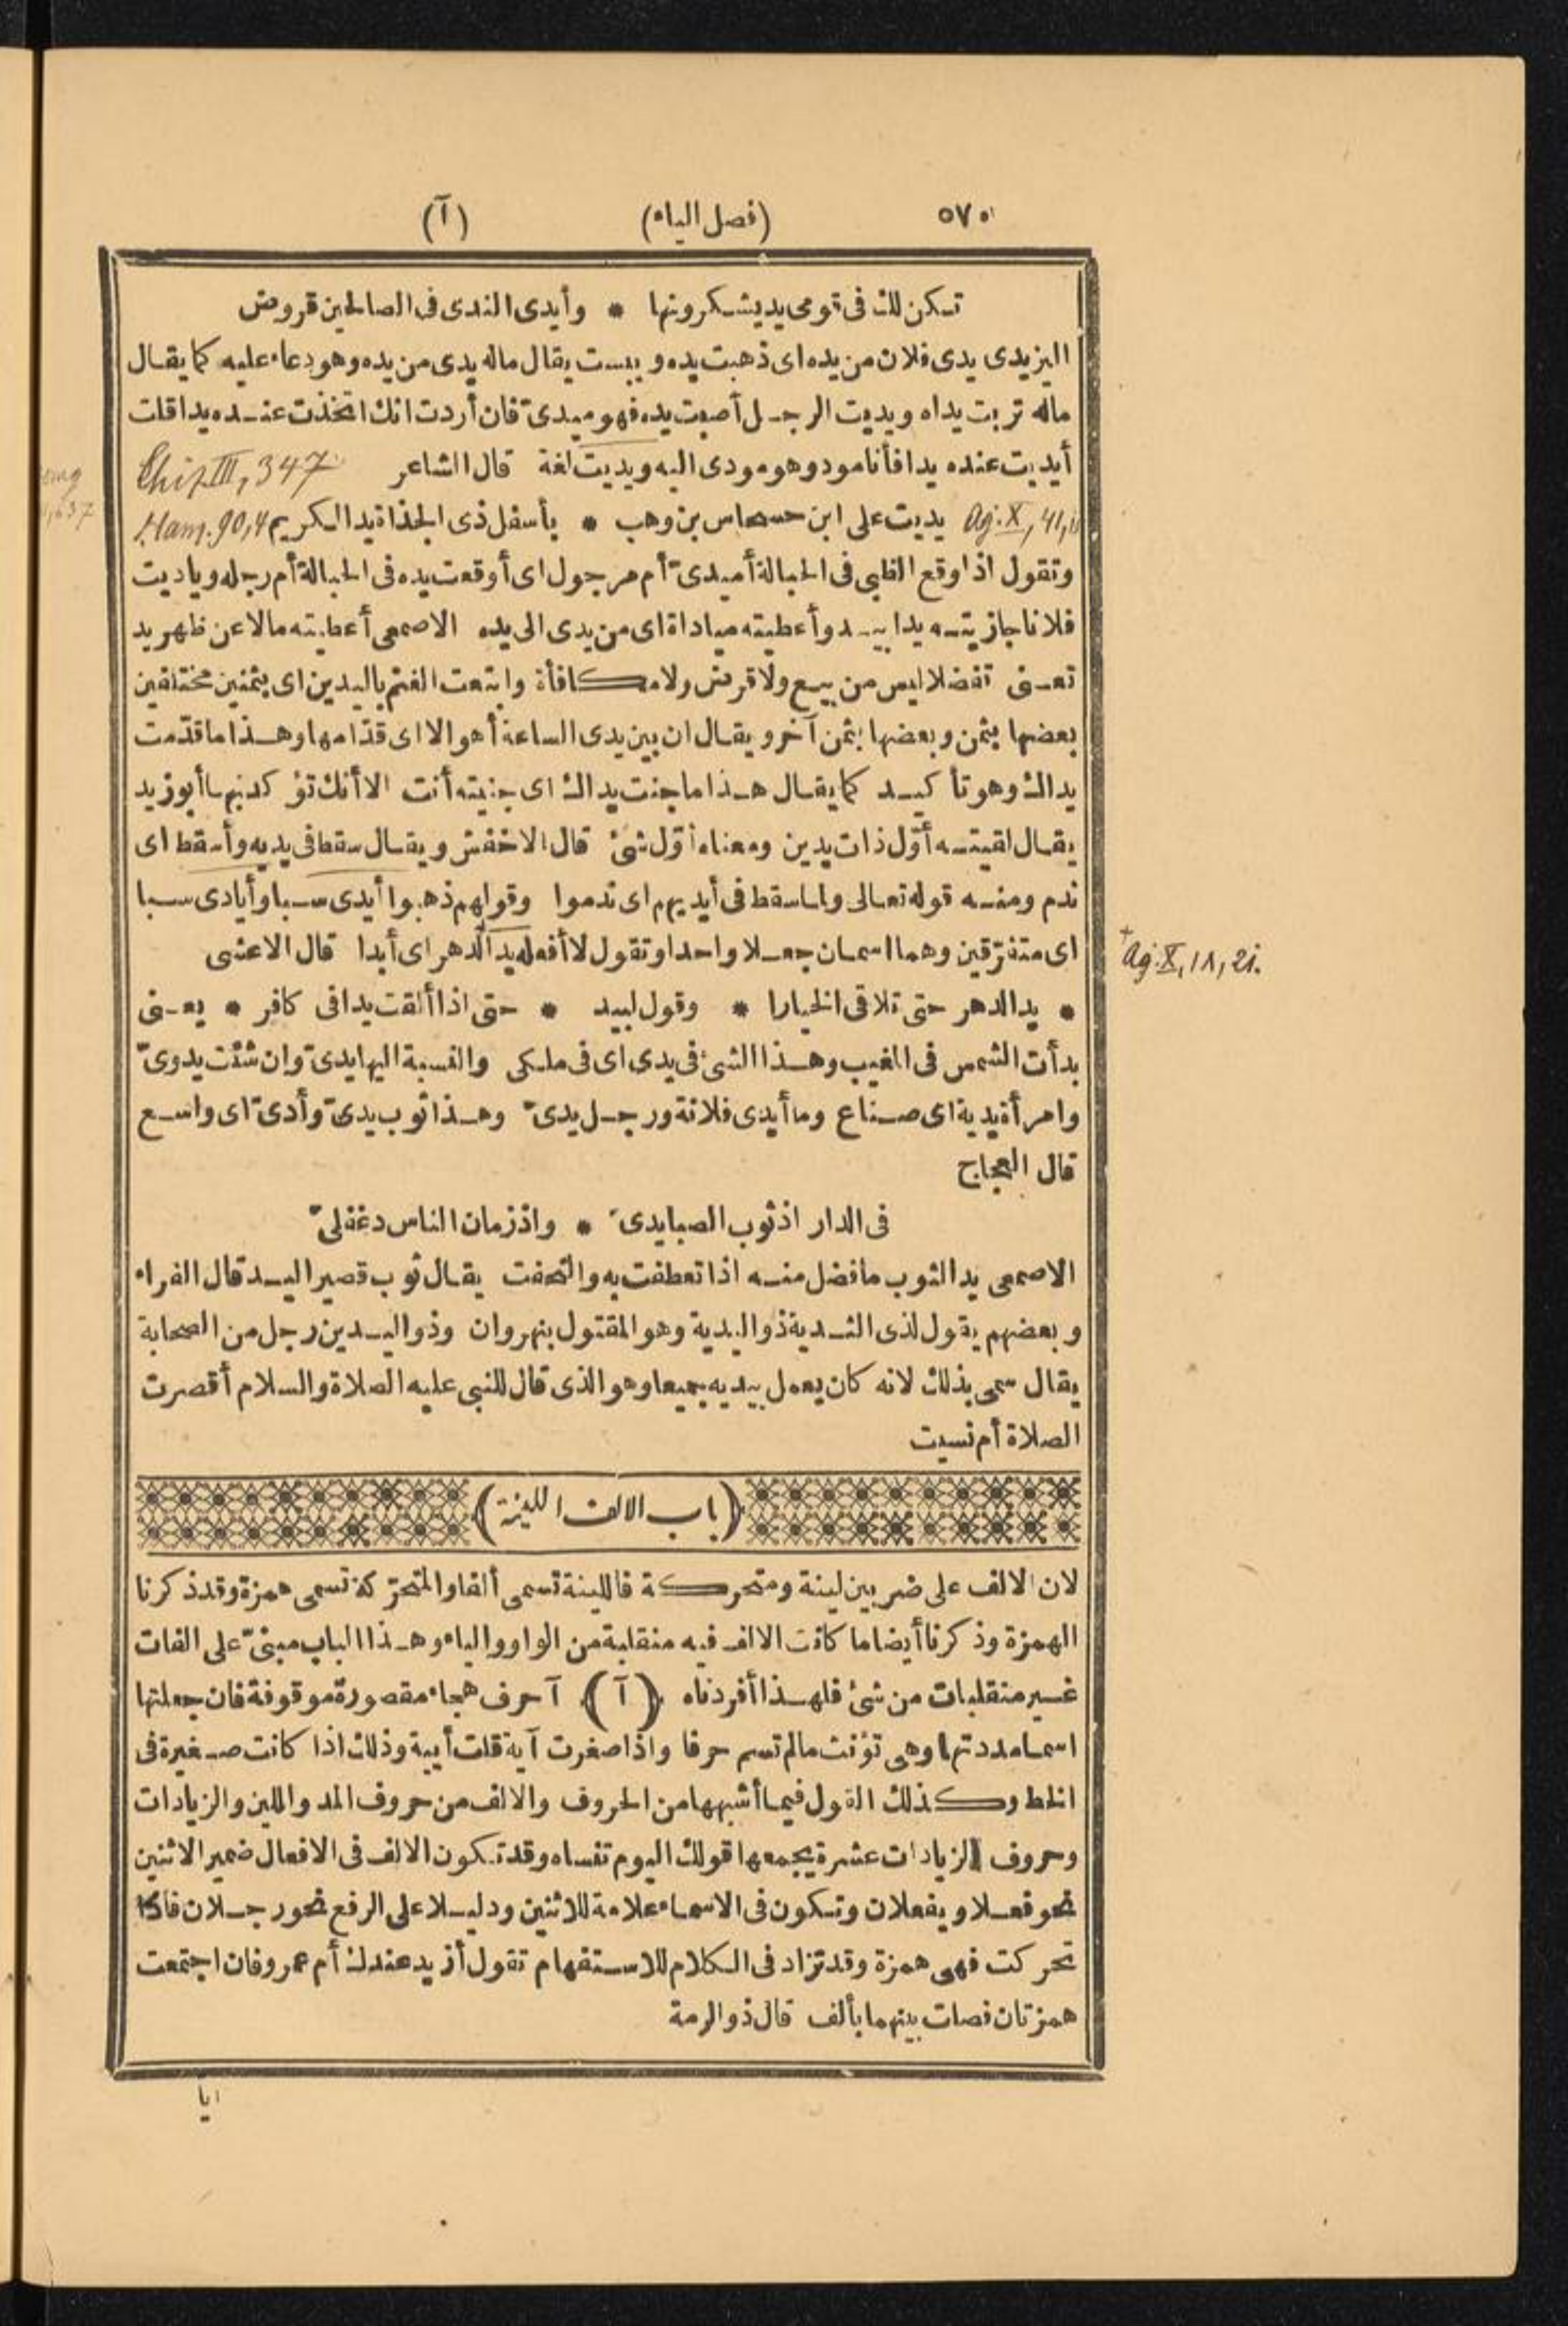 ٥٧٠ (فصل الياء) (آ)
تكن لك فى قومى يد يشكرونها * وأيدى الندى فى الصالحين قروض
اليزيدى يدى فلان من يده اى ذهبت يده ويبست يقال ماله يدى من يده وهو دعاء عليه كما يقال
ماله تربت يداه ويديت الرجل أصبت يده فهو ميدىّ فان أردت انك اتخذت عنده يدا قلت
أيديت عنده يدا فأنا مود وهو مودى اليه ويديت لغة قال الشاعر
Chiz. III, 347
Ag. X, 41, يديت على ابن حسحاس بن وهب * بأسفل ذى الجذاة يد الكريم Ham. 90,4
وتقول اذا وقع الظبى فى الحبالة أميدىّ أم مرجول اى أوقعت يده فى الحبالة أم رجله وياديت
فلانا جازيته يدا بيد وأعطيته مياداة اى من يدى الى يده الاصمعى أعطيته مالا عن ظهر يد
تعنى تفضلا ليس من بيع ولا قرض ولا مكافأة وابتعت الغنم باليدين اى بثمنين مختلفين
بعضها بثمن وبعضها بثمن آخر ويقال ان بين يدى الساعة أهوالا اى قدّامها وهذا ما قدّمت
يداك وهو تأكيد كما يقال هذا ما جنت يداك اى جنيته أنت الا أنك تؤكد بهما أبو زيد
يقال لقيته أوّل ذات يدين ومعناه أوّل شئ قال الاخفش ويقال سقط فى يديه وأسقط اى
ندم ومنه قوله تعالى ولما سقط فى أيديهم اى ندموا وقولهم ذهبوا أيدى سبا وأيادى سبا
اى متفرّقين وهما اسمان جعلا واحدا وتقول لا أفعله يد الدهر اى أبدا قال الاعشى
+ Ag. X, 18, 2i.
* يد الدهر حتى تلاقى الخيارا * وقول لبيد * حتى اذا ألقت يدا فى كافر * يعنى
بدأت الشمس فى المغيب وهذا الشئ فى يدى اى فى ملكى والنسبة اليها يدىّ وان شئت يدوىّ
وامرأة يدية اى صناع وما أيدى فلانة ورجل يدىّ وهذا ثوب يدىّ وأدىّ اى واسع
قال العجاج
فى الدار اذ ثوب الصبا يدىّ * واذ زمان الناس دغفلىّ
الاصمعى يد الثوب ما فضل منه اذا تعطفت به والتحفت يقال ثوب قصير اليد قال الفراء
وبعضهم يقول لذى الثدية ذو اليدية وهو المقتول بنهروان وذو اليدين رجل من الصحابة
يقال سمى بذلك لانه كان يعمل بيديه جميعا وهو الذى قال للنبى عليه الصلاة والسلام أقصرت
الصلاة أم نسيت
(باب الالف اللينة)
لان الالف على ضربين لينة ومتحركة فاللينة تسمى ألفا والمتحرّكة تسمى همزة وقد ذكرنا
الهمزة وذكرنا أيضا ما كانت الالف فيه منقلبة من الواو والياء وهذا الباب مبنىّ على الفات
غير منقلبات من شئ فلهذا أفردناه (آ) آ حرف هجاء مقصورة موقوفة فان جعلتها
اسما مددتها وهى تؤنث ما لم تسم حرفا واذا صغرت آية قلت أيية وذلك اذا كانت صغيرة فى
الخط وكذلك القول فيما أشبهها من الحروف والالف من حروف المد واللين والزيادات
وحروف الزيادات عشرة يجمعها قولك اليوم تنساه وقد تكون الالف فى الافعال ضمير الاثنين
نحو فعلا ويفعلان وتكون فى الاسماء علامة للاثنين ودليلا على الرفع نحو رجلان فاذا
تحركت فهى همزة وقد تزاد فى الكلام للاستفهام تقول أزيد عندك أم عمرو فان اجتمعت
همزتان فصلت بينهما بألف قال ذو الرمة
ايا